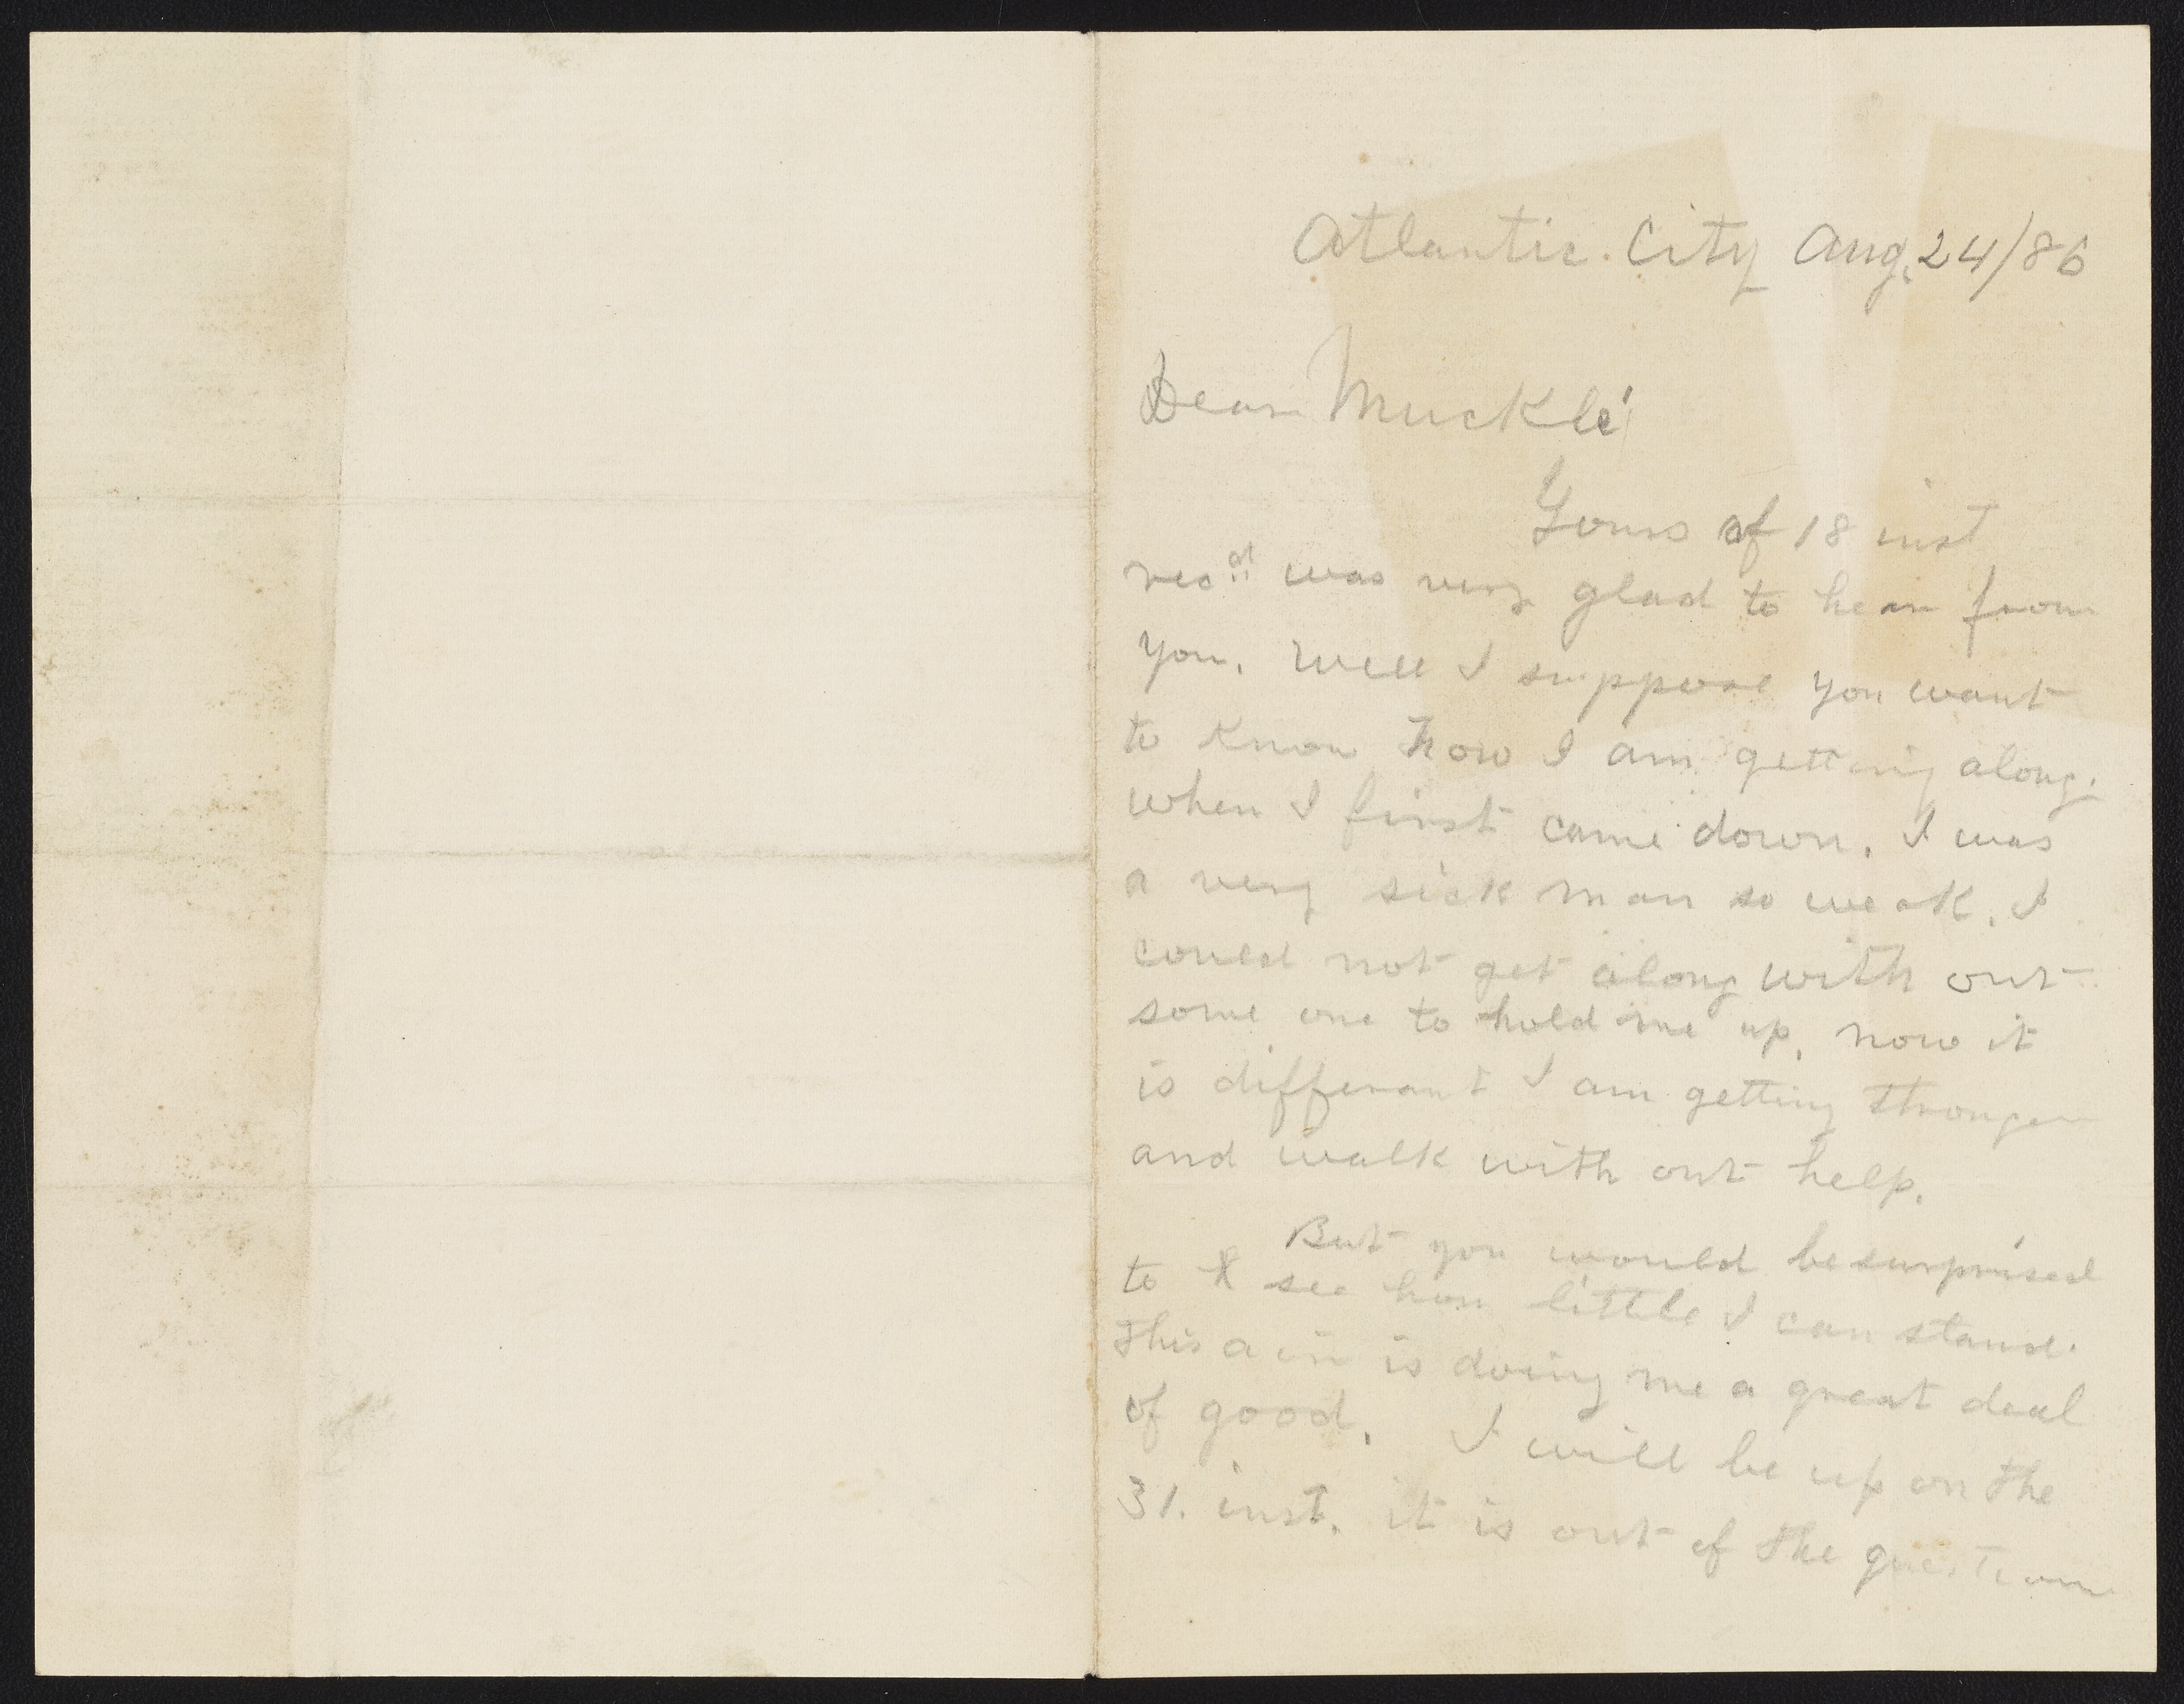 Atlantic. City Aug. 24/86
Dear Mucklé
Yours of 18 inst
recd was very glad to hear from
you. Well I suppose you want
to Know how I am getting along.
when I first came down. I was
a very sick man so weak. I
could not get along with out
some one to hold me up. now it
is differant I am getting stronger
and walk with out help.
But you would be surprised
to see how little I can stand.
This air is doing me a great deal
of good. I will be up on the
31. inst. it is out of the question